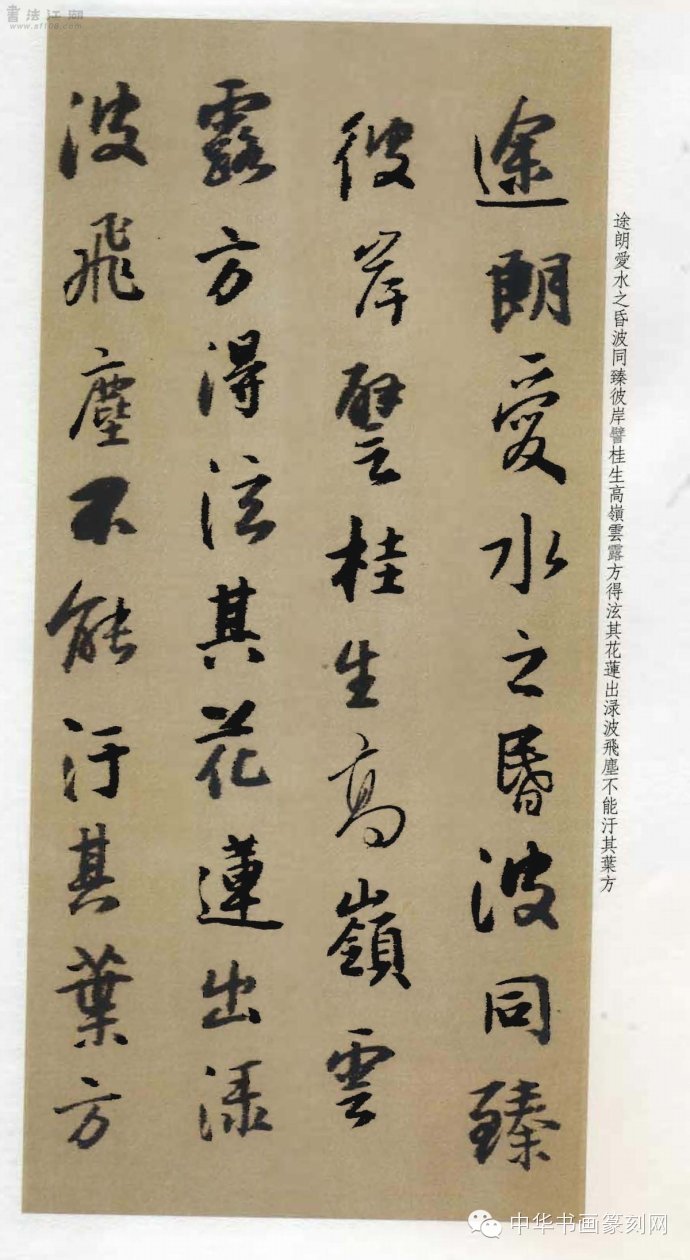 書法江湖
www.sf108.com
途朗愛水之昏波同臻
彼岸譬桂生高嶺雲
露方得泫其花蓮出渌
波飛塵不能汙其葉方
途朗愛水之昏波同臻彼岸譬桂生高嶺雲露方得泫其花蓮出渌波飛塵不能汙其葉方
中华书画篆刻网